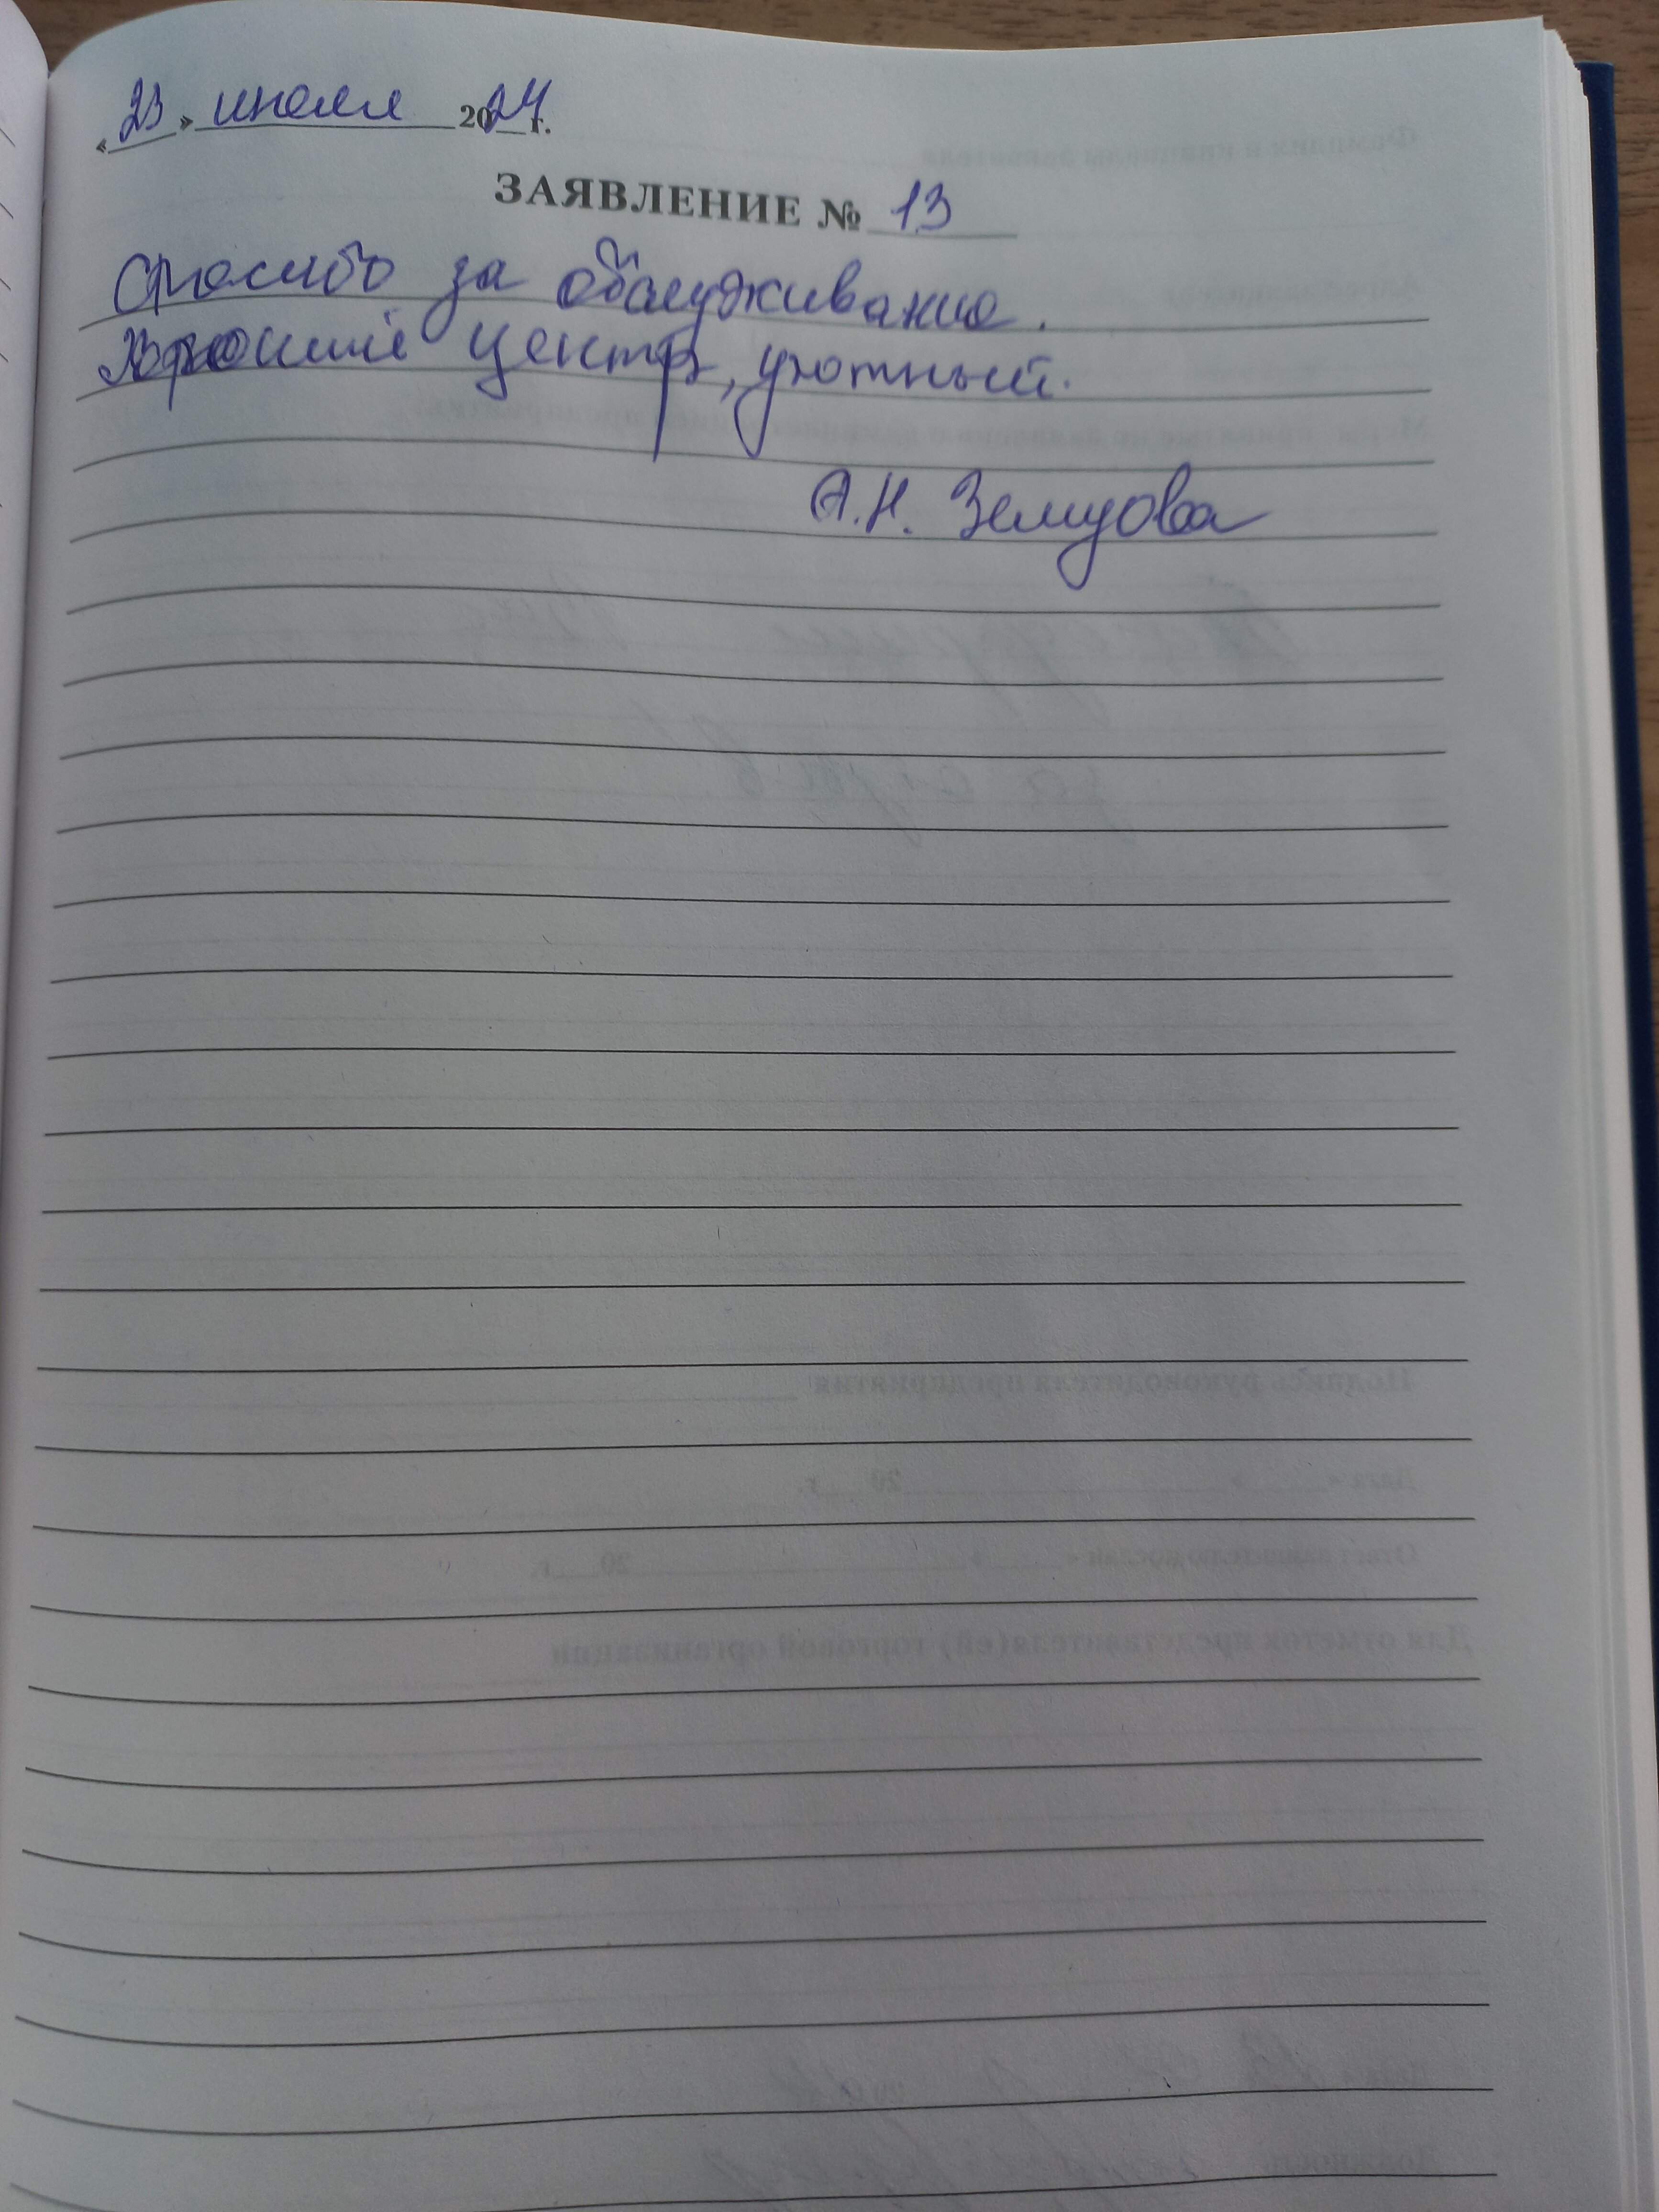 « 23 » июля 2024 г.
ЗАЯВЛЕНИЕ № 13
Спасибо за обслуживание.
Хороший центр, уютный.
А.Н.